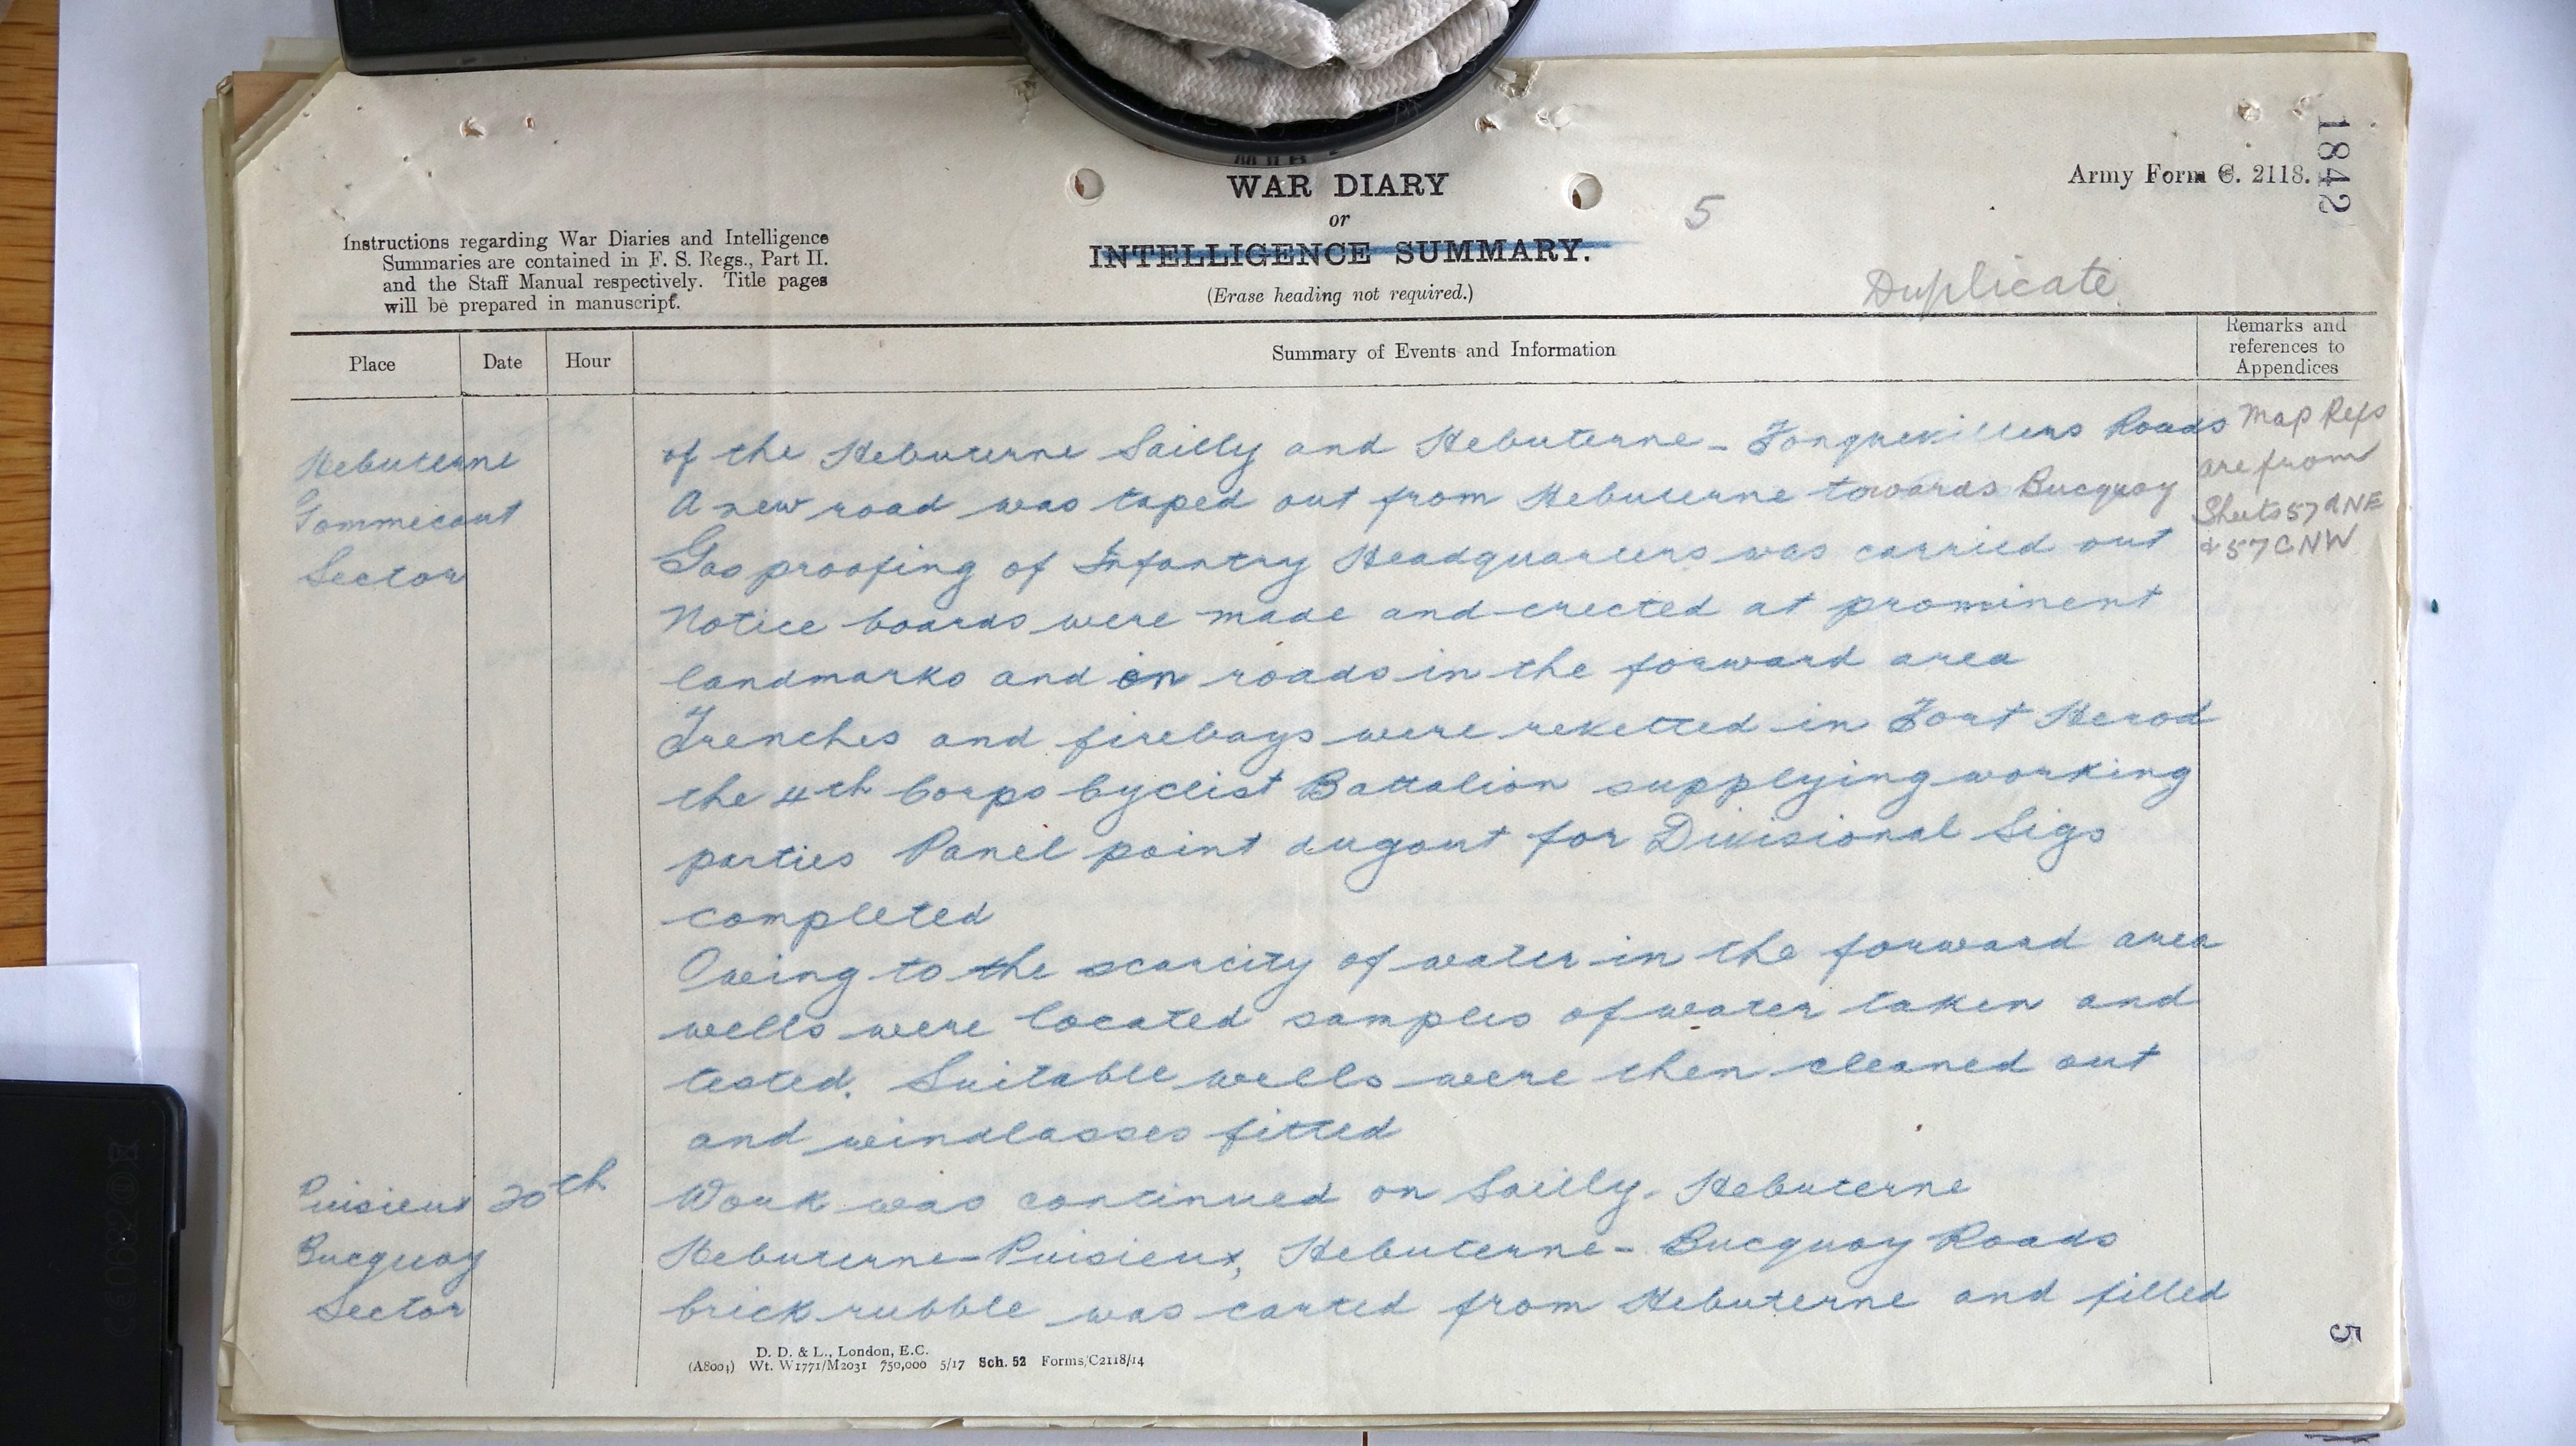 1842
WAR DIARY
or
INTELLIGENCE SUMMARY.
(Erase heading not required.)
5
Army Form C. 2118.
Duplicate
Instructions regarding War Diaries and Intelligence
Summaries are contained in F. S. Regs., Part II.
and the Staff Manual respectively. Title pages
will be prepared in manuscript.
Place Date Hour Summary of Events and Information Remarks and references to Appendices
Map Refs
are from
Sheets 57 D NE
& 57 C NW
Hebuterne of the Hebuterne Sailly and Hebuterne - Fonquevillers Roads
Gommecourt A new road was taped out from Hebuterne towards Bucquoy
Sector Gas proofing of Infantry Headquarters was carried out
Notice boards were made and erected at prominent
landmarks and on roads in the forward area
Trenches and firebays were revetted in Fort Herod
the 4th Corps Cyclist Battalion supplying working
parties Panel point dugout for Divisional Sigs
completed
Owing to the scarcity of water in the forward area
wells were located samples of water taken and
tested. Suitable wells were then cleaned out
and windlasses fitted
Puisieux 20th Work was continued on Sailly - Hebuterne
Bucquoy Hebuterne - Puisieux, Hebuterne - Bucquoy Roads
Sector brick rubble was carted from Hebuterne and filled
D. D. & L., London, E.C.
(A8004) Wt. W1771/M2031 750,000 5/17 Sch. 52 Forms/C2118/14
5